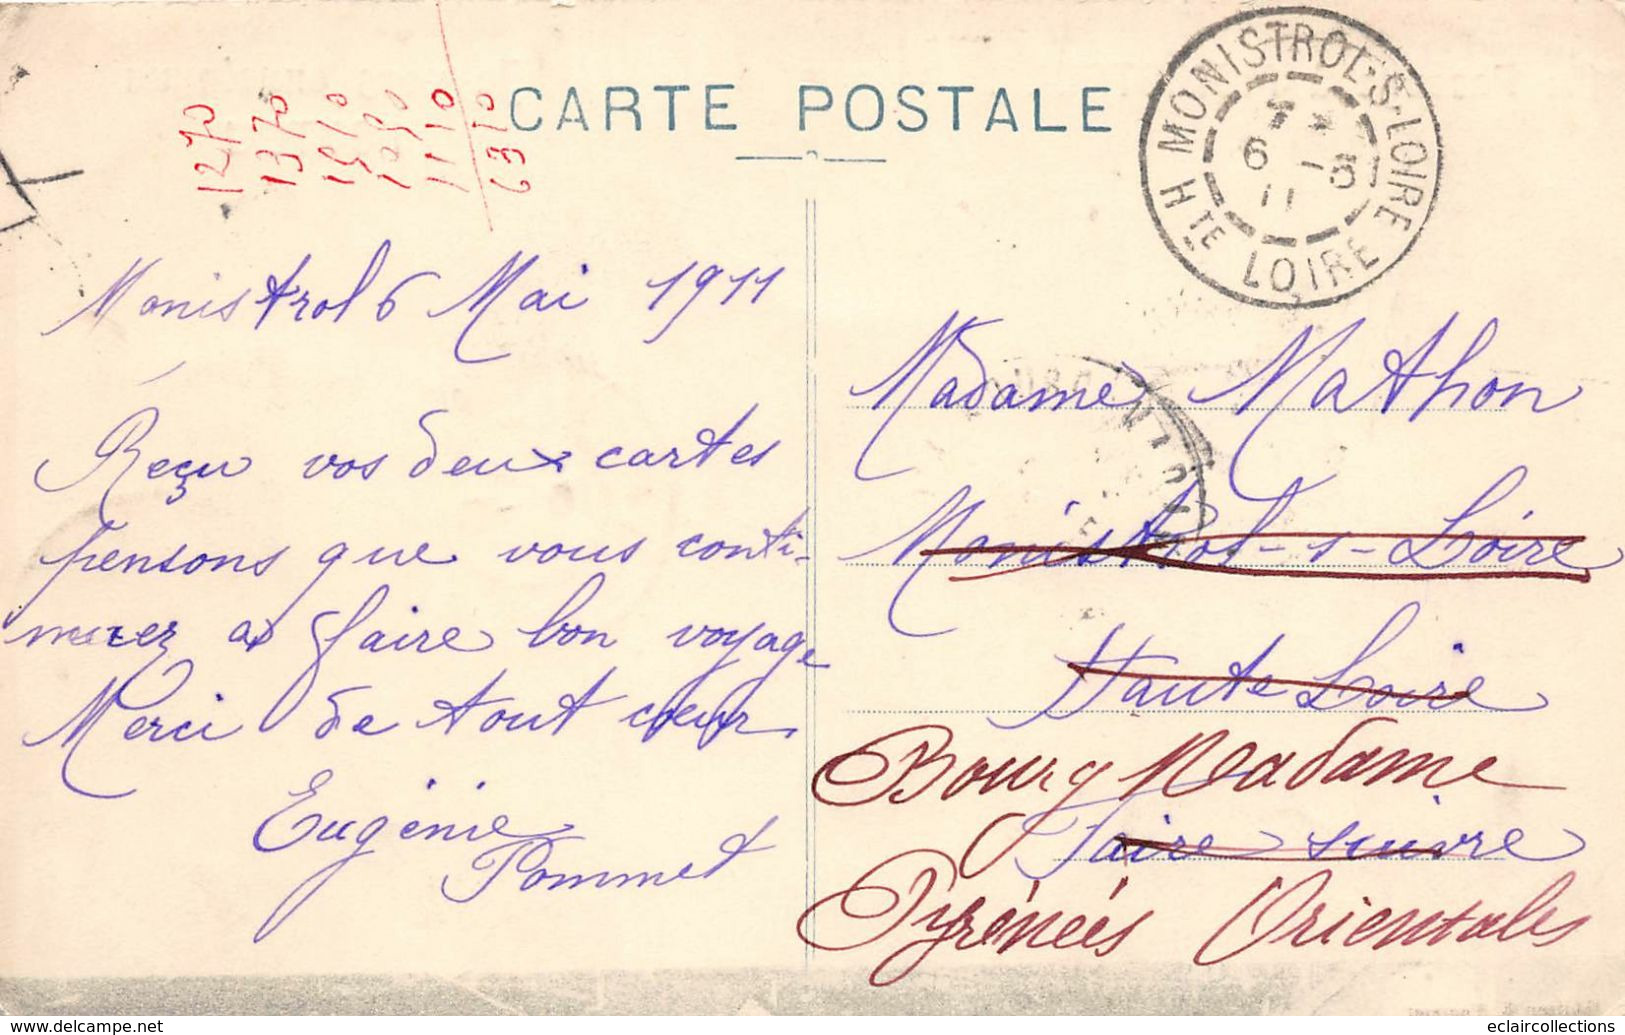 CARTE POSTALE
1270
1370
1910
1090
1110
6310
MONISTROL-S-LOIRE
6 -5
11
HTE LOIRE
Monistrol 6 Mai 1911
Reçu vos deux cartes
pensons que vous conti-
nuez a faire bon voyage
Merci de tout cœur
Eugénie
Pommet
Madame Mathon
Monistrol-s-Loire
Haute Loire
Bourg Madame
Faire suivre
Pyrénées Orientales
eclaircollections.com